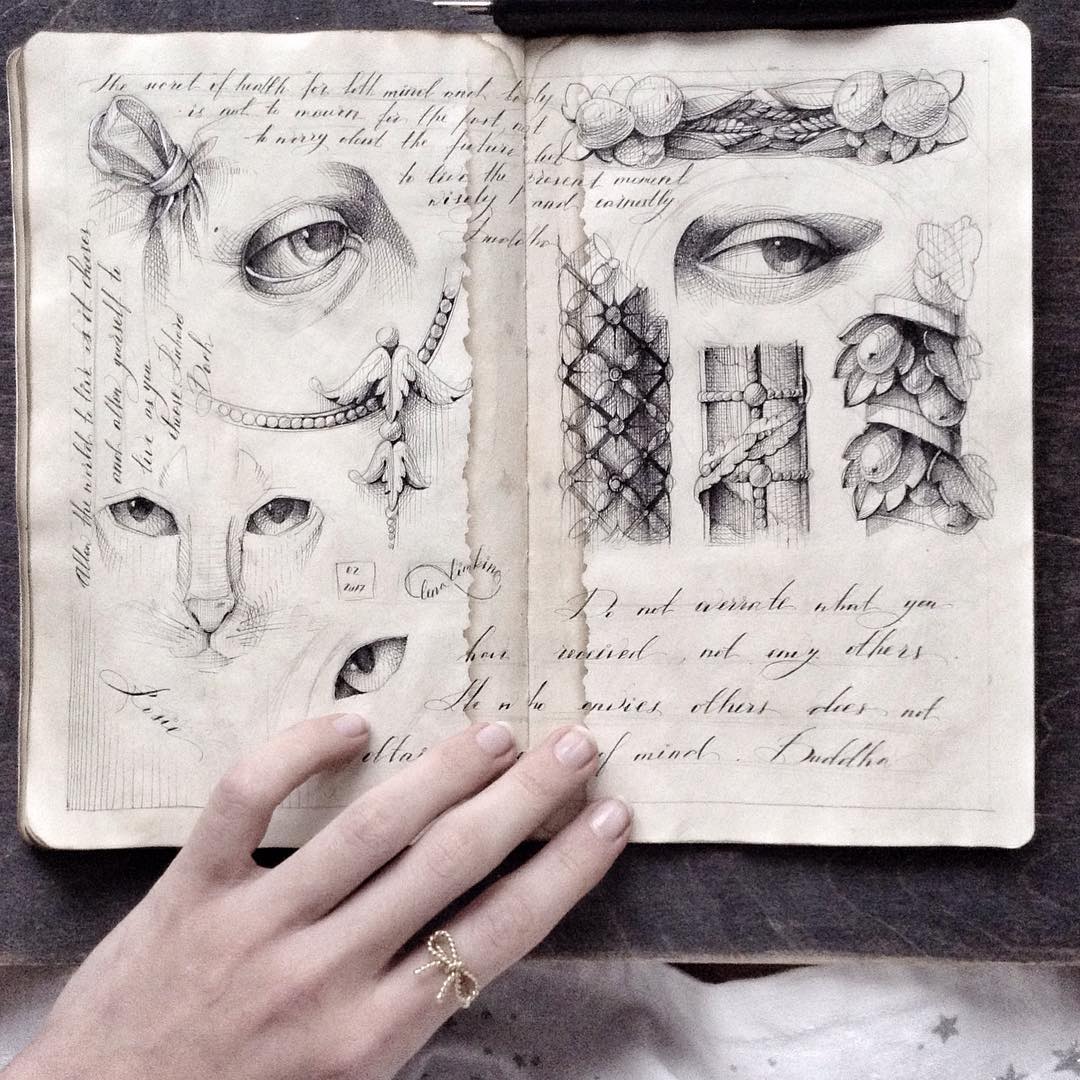 The secret of health for both mind and body
is not to mourn for the past, not
to worry about the future, but
to live the present moment
wisely and earnestly
Buddha
Allow the world to live as it chooses
and allow yourself to
live as you
choose Richard
Bach
02
2017
Lena Limkina
Fenix
Do not overrate what you
have received, not envy others.
He who envies others does not
of mind. Buddha